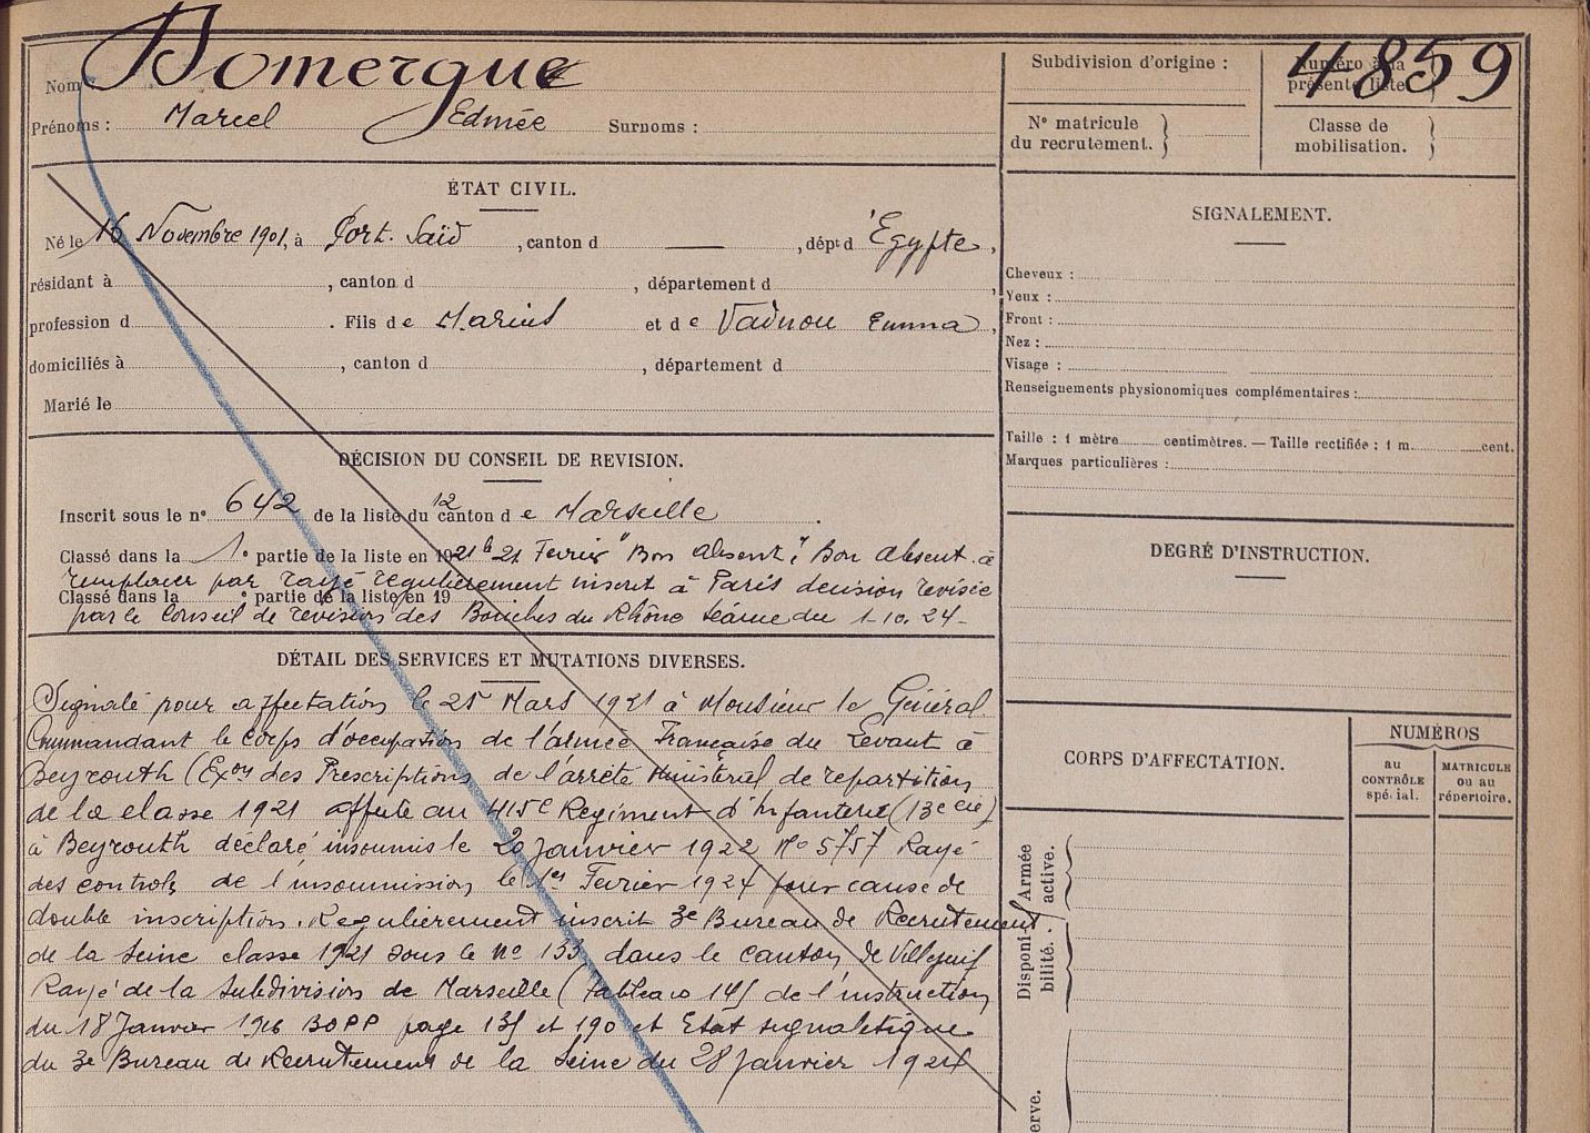 Nom : Domergue
Prénoms : Marcel Edmée Surnoms :
ÉTAT CIVIL.
Né le 16 Novembre 1901, à Port. Saïd, canton d — , dépt d'Egypte,
résidant à , canton d , département d ,
profession d . Fils de Marius et de Emma,
domiciliés à , canton d , département d
Marié le
DÉCISION DU CONSEIL DE REVISION.
Inscrit sous le n° 642 de la liste du 12 canton de Marseille.
Classé dans la 1e partie de la liste en 1921 21 Fevrier "Bon absent" Bon absent à
remplacer par rayé régulièrement inscrit à Paris decision revisée
Classé dans la e partie de la liste en 19
par le Conseil de revision des Bouches du Rhône séance du 1-10. 24-
DÉTAIL DES SERVICES ET MUTATIONS DIVERSES.
Signalé pour affectation le 25 Mars 1921 à Monsieur le Général
Commandant le Corps d'occupation de l'armée Française du Levant à
Beyrouth (Exon des Prescriptions de l'arrêté Ministériel de repartition
de la classe 1921 affecté au 415e Regiment d'Infanterie (13e Cie)
à Beyrouth déclaré insoumis le 20 Janvier 1922 No 5757 Rayé
des controls de l'insoumission le 1er Fevrier 1924 pour cause de
double inscription. Regulièrement inscrit 3e Bureau de Recrutement
de la Seine classe 1921 sous le no 133 dans le canton de Villejuif
Rayé de la Subdivision de Marseille (Tableau de l'instruction
du 18 Janvier 1916 BOPP page et 190 et Etat signaletique
du 3e Bureau de Recrutement de la Seine du 28 Janvier 1924
Subdivision d'origine :
Numéro à la
présente liste
4859
N° matricule
du recrutement.
Classe de
mobilisation.
SIGNALEMENT.
Cheveux :
Yeux :
Front :
Nez :
Visage :
Renseignements physionomiques complémentaires :
Taille : 1 mètre centimètres. — Taille rectifiée : 1 m. cent.
Marques particulières :
DEGRÉ D'INSTRUCTION.
CORPS D'AFFECTATION.
NUMÉROS
au
CONTRÔLE
spécial.
MATRICULE
ou au
répertoire.
Armée
active.
Disponi-
bilité.
erve.